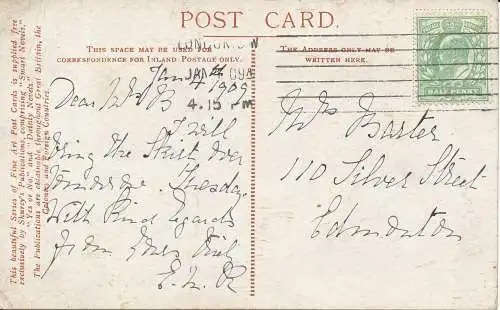 POST CARD.
THIS SPACE MAY BE USED FOR
CORRESPONDENCE FOR INLAND POSTAGE ONLY.
THE ADDRESS ONLY MAY BE
WRITTEN HERE.
LONDON. S.W
JAN 4 09
4.15 PM
HALF PENNY
Jan 4th 1909
Dear Mrs B
I will
bring the Skirt over
Tuesday
With kind regards
from yours truly
E. M. R
Mrs Baxter
110 Silver Street
Edmonton
This beautiful Series of Fine Art Post Cards is supplied free
exclusively by Shurey's Publications, comprising "Smart Novels,"
"Yes or No," and "Dainty Novels."
The Publications are obtainable throughout Great Britain, the
Colonies and Foreign Countries.